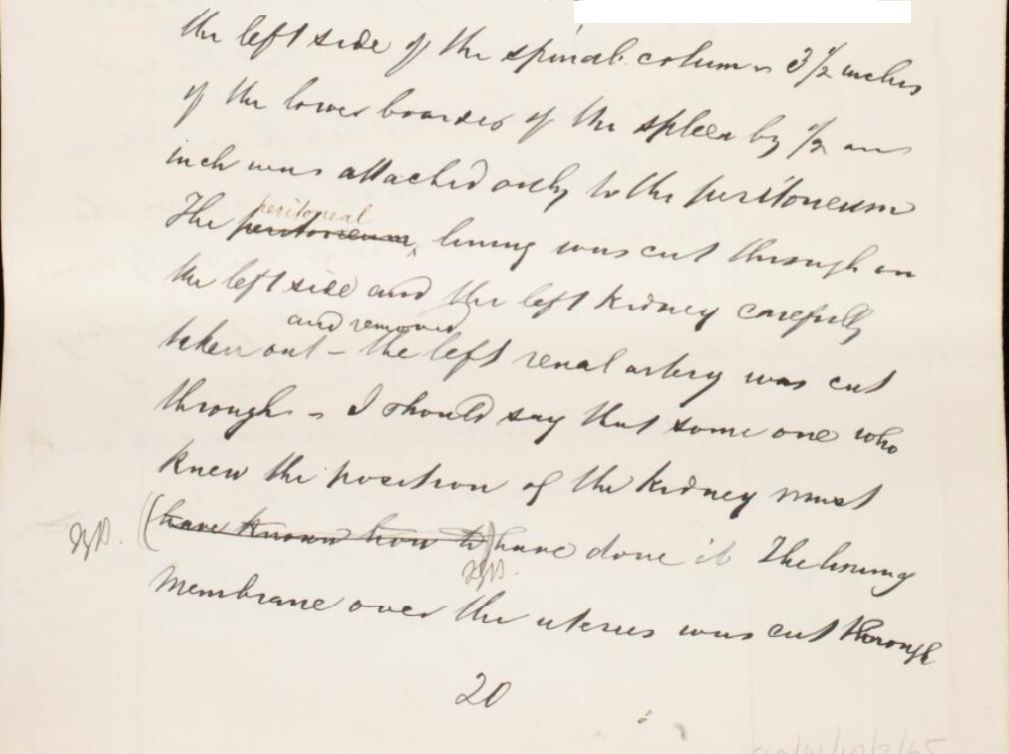 the left side of the spinal column 3 1/2 inches
of the lower boarder of the spleen by 1/2 an
inch was attached only to the peritoneum
peritoneal
The peritoneum lining was cut through on
the left side and the left kidney carefully
and removed
taken out – the left renal artery was cut
through – I should say that some one who
knew the position of the kidney must
(have known how to) have done it The lining
membrane over the uterus was cut through
20